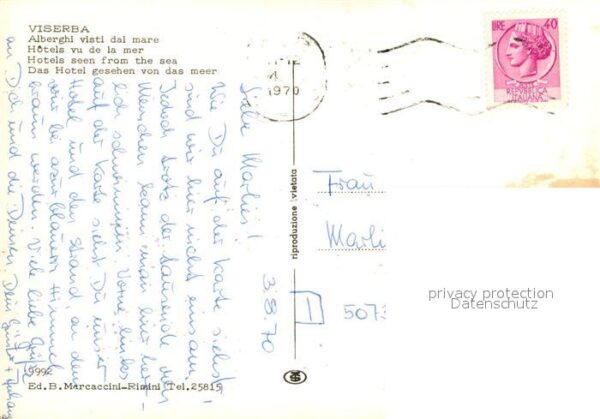 VISERBA
Alberghi visti dal mare
Hôtels vu de la mer
Hotels seen from the sea
Das Hotel gesehen von das meer
1970
LIRE 40
REPUBBLICA
ITALIANA
3.8.70
Liebe Marlies!
Wie Du auf der Karte siehst
sind wir hier nicht einsam.
Jedoch trotz der tausende von
Menschen kann man hier herr-
lich schwimmen. Vorne links
auf der Karte siehst Du unser
Hotel und den Strand an dem
wir bei azurblauem Himmel
braun werden. Viele liebe Grüße
an Dich und die Deinen Dein
riproduzione vietata
Frau
Marli
I
5073
privacy protection
Datenschutz
9992
Ed. B. Marcaccini-Rimini Tel. 25815